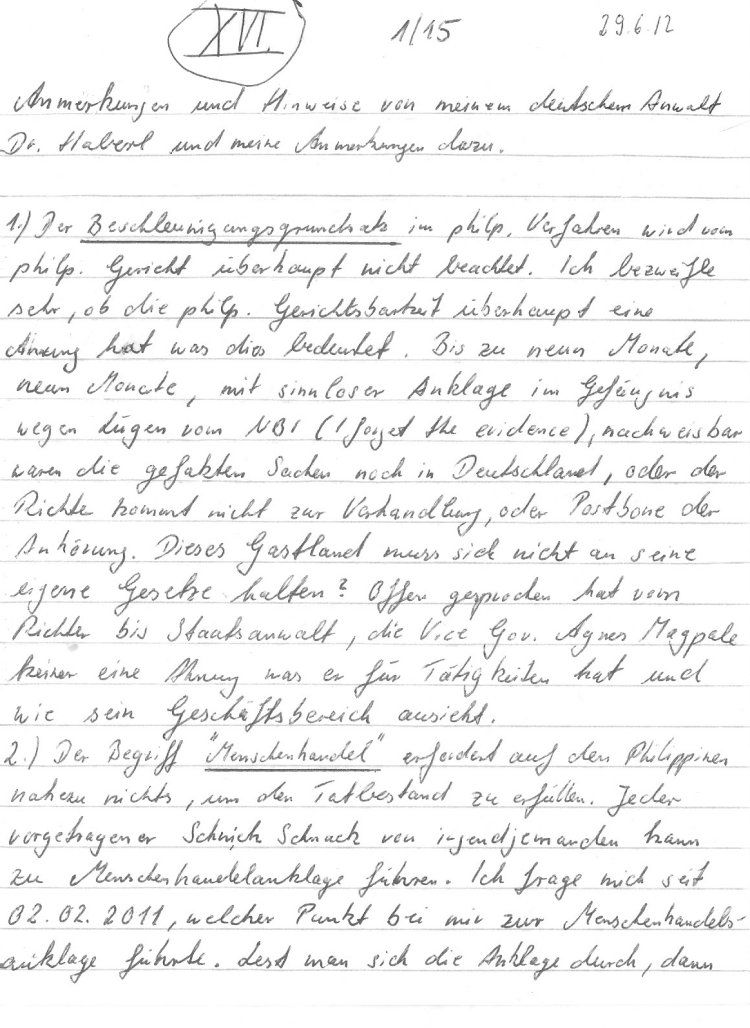 XVI. 1/15 29.6.12
Anmerkungen und Hinweise von meinem deutschem Anwalt
Dr. Haberl und meine Anmerkungen dazu.
1.) Der Beschleunigungsgrundsatz im philp. Verfahren wird vom
philp. Gericht überhaupt nicht beachtet. Ich bezweifle
sehr, ob die philp. Gerichtsbarkeit überhaupt eine
Ahnung hat was dies bedeutet. Bis zu neun Monate,
neun Monate, mit sinnloser Anklage im Gefängnis
wegen Lügen vom NBI (I forget the evidence), nachweisbar
waren die gefakten Sachen noch in Deutschland, oder der
Richte kommt nicht zur Verhandlung, oder Postbone der
Anhörung. Dieses Gastland muss sich nicht an seine
eigene Gesetze halten? Offen gesprochen hat vom
Richter bis Staatsanwalt, die Vice Gov. Agnes Magpale
keiner eine Ahnung was er für Tätigkeiten hat und
wie sein Geschäftsbereich aussieht.
2.) Der Begriff "Menschenhandel" erfordert auf den Philippinen
nahezu nichts, um den Tatbestand zu erfüllen. Jeder
vorgetragener Schnick Schnack von irgendjemanden kann
zu Menschenhandelanklage führen. Ich frage mich seit
02.02.2011, welcher Punkt bei mir zur Menschenhandels-
anklage führte. Lest man sich die Anklage durch, dann